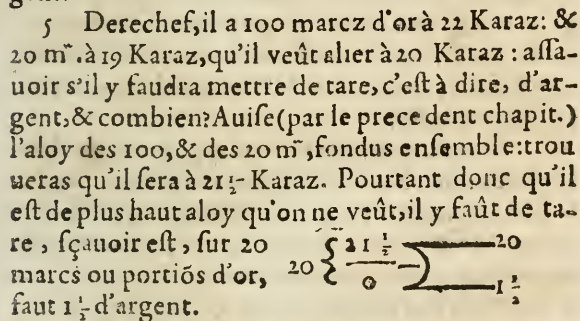 5 Derechef,il a 100 marcz d'or à 22 Karaz: &
20 m̃.à 19 Karaz,qu'il veût alier à 20 Karaz : aſſa-
uoir s'il y faudra mettre de tare,c'eſt à dire, d'ar-
gent,& combien? Auiſe(par le precedent chapit.)
l'aloy des 100,& des 20 m̃,fondus enſemble:trou
ueras qu'il ſera à 21 1/2 Karaz. Pourtant donc qu'il
eſt de plus haut aloy qu'on ne veût,il y faût de ta-
re , ſçauoir eſt , ſur 20
marcs ou portiõs d'or,
faut 1 1/2 d'argent.
20 { 21 1/2 20
0 1 1/2